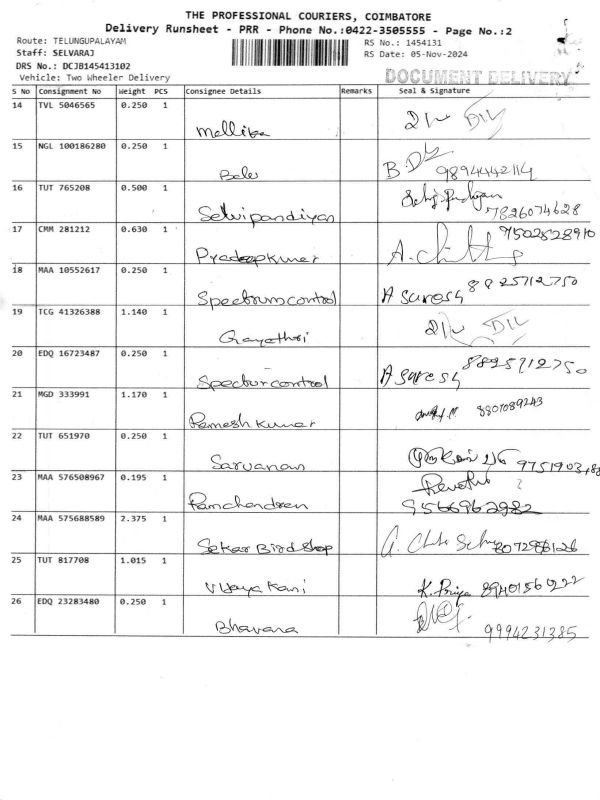 THE PROFESSIONAL COURIERS, COIMBATORE
Delivery Runsheet - PRR - Phone No.:0422-3505555 - Page No.:2
Route: TELUNGUPALAYAM
RS No.: 1454131
Staff: SELVARAJ
RS Date: 05-Nov-2024
DRS No.: DCJB145413102
Vehicle: Two Wheeler Delivery
DOCUMENT DELIVERY
S No Consignment No Weight PCS Consignee Details Remarks Seal & Signature
14 TVL 5046565 0.250 1
Mallika
15 NGL 100186280 0.250 1
9894442114
16 TUT 765208 0.500 1
Selvipandiyan
7826074628
17 CMM 281212 0.630 1
9502528910
Pradeepkumar
18 MAA 10552617 0.250 1
Spectrumcontrol A Suresh 8825712750
19 TCG 41326388 1.140 1
Gayathri
20 EDQ 16723487 0.250 1
Specturcontrol A Suresh 8825712750
21 MGD 333991 1.170 1
8807089243
Ramesh Kumar
22 TUT 651970 0.250 1
Sarvanan
23 MAA 576508967 0.195 1
Revathi
Ramchandren 9566962982
24 MAA 575688589 2.375 1
Sekar Bird Shop
25 TUT 817708 1.015 1
Vijaya Kani K. Priya 8940156222
26 EDQ 23283480 0.250 1
Bhavana 9994231385